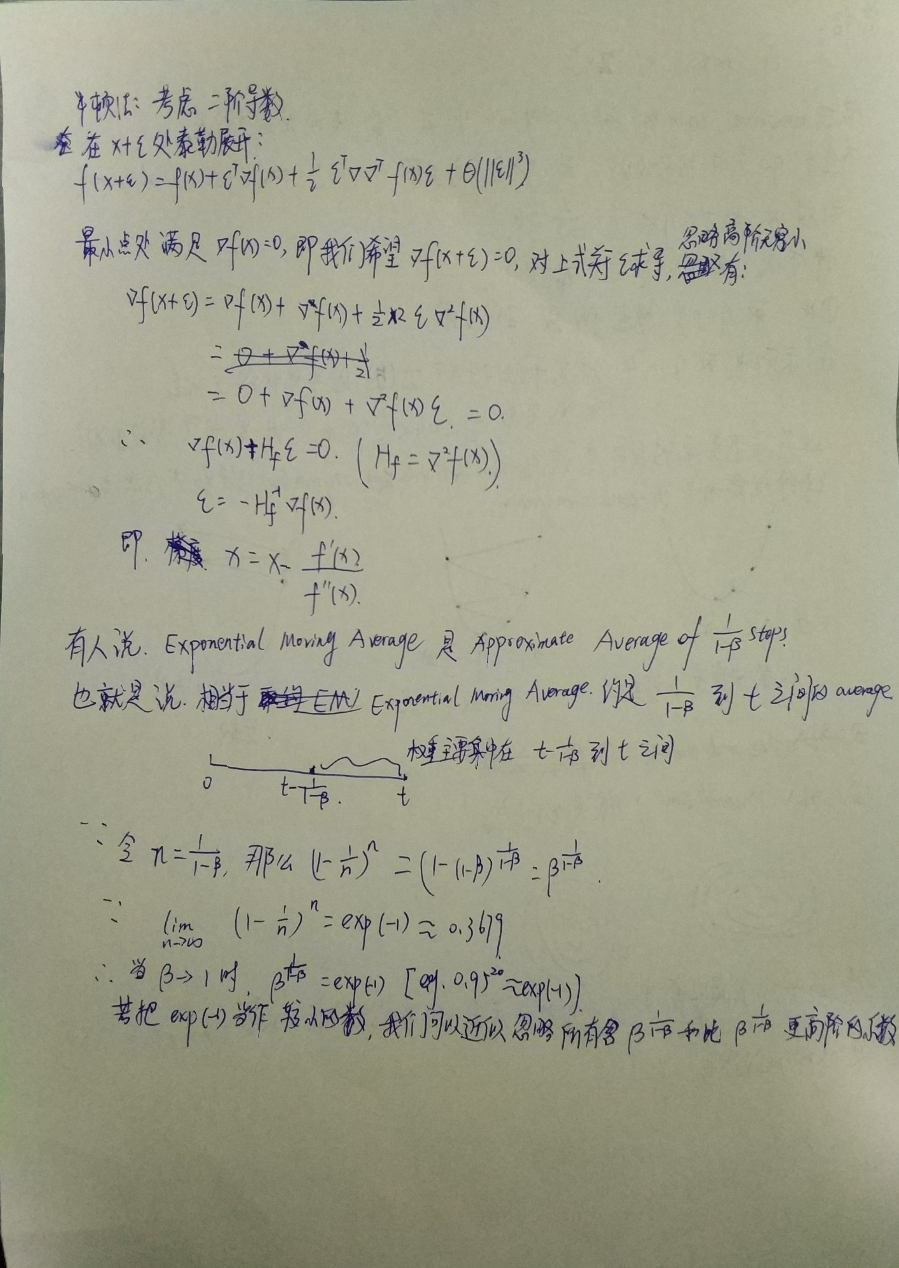 牛顿法: 考虑 二阶导数.
在 x+ε 处泰勒展开:
f(x+ε) = f(x) + ε^T ∇f(x) + 1/2 ε^T ∇∇^T f(x) ε + O(||ε||^3)
忽略高阶无穷小
最小点处 满足 ∇f(x)=0, 即 我们希望 ∇f(x+ε)=0, 对上式关于 ε求导, 有:
∇f(x+ε) = ∇f(x) + ∇f(x) + 1/2 ×2 ε ∇²f(x)
= 0 + ∇²f(x) + 1/2
= 0 + ∇f(x) + ∇²f(x) ε = 0.
∴ ∇f(x) + H_f ε = 0. (H_f = ∇²f(x).)
ε = -H_f^{-1} ∇f(x).
即. 梯度 x = x - f'(x) / f''(x).
有人说. Exponential Moving Average 是 Approximate Average of 1/(1-β) steps.
也就是说. 相当于 Exponential Moving Average. 约是 1/(1-β) 到 t 之间的 average
权重主要集中在 t-1/(1-β) 到 t 之间
0 t-1/(1-β). t
∵ 令 n = 1/(1-β), 那么 (1-1/n)^n = (1-(1-β))^{1/(1-β)} = β^{1/(1-β)}.
∵ lim n→∞ (1-1/n)^n = exp(-1) ≈ 0.3679
∴ 当 β→1 时, β^{1/(1-β)} = exp(-1) [eg. 0.95^20 ≈ exp(-1)]
若把 exp(-1) 当作 较小的数, 我们可以近似 忽略 所有含 β^{1/(1-β)} 和比 β^{1/(1-β)} 更高阶的系数